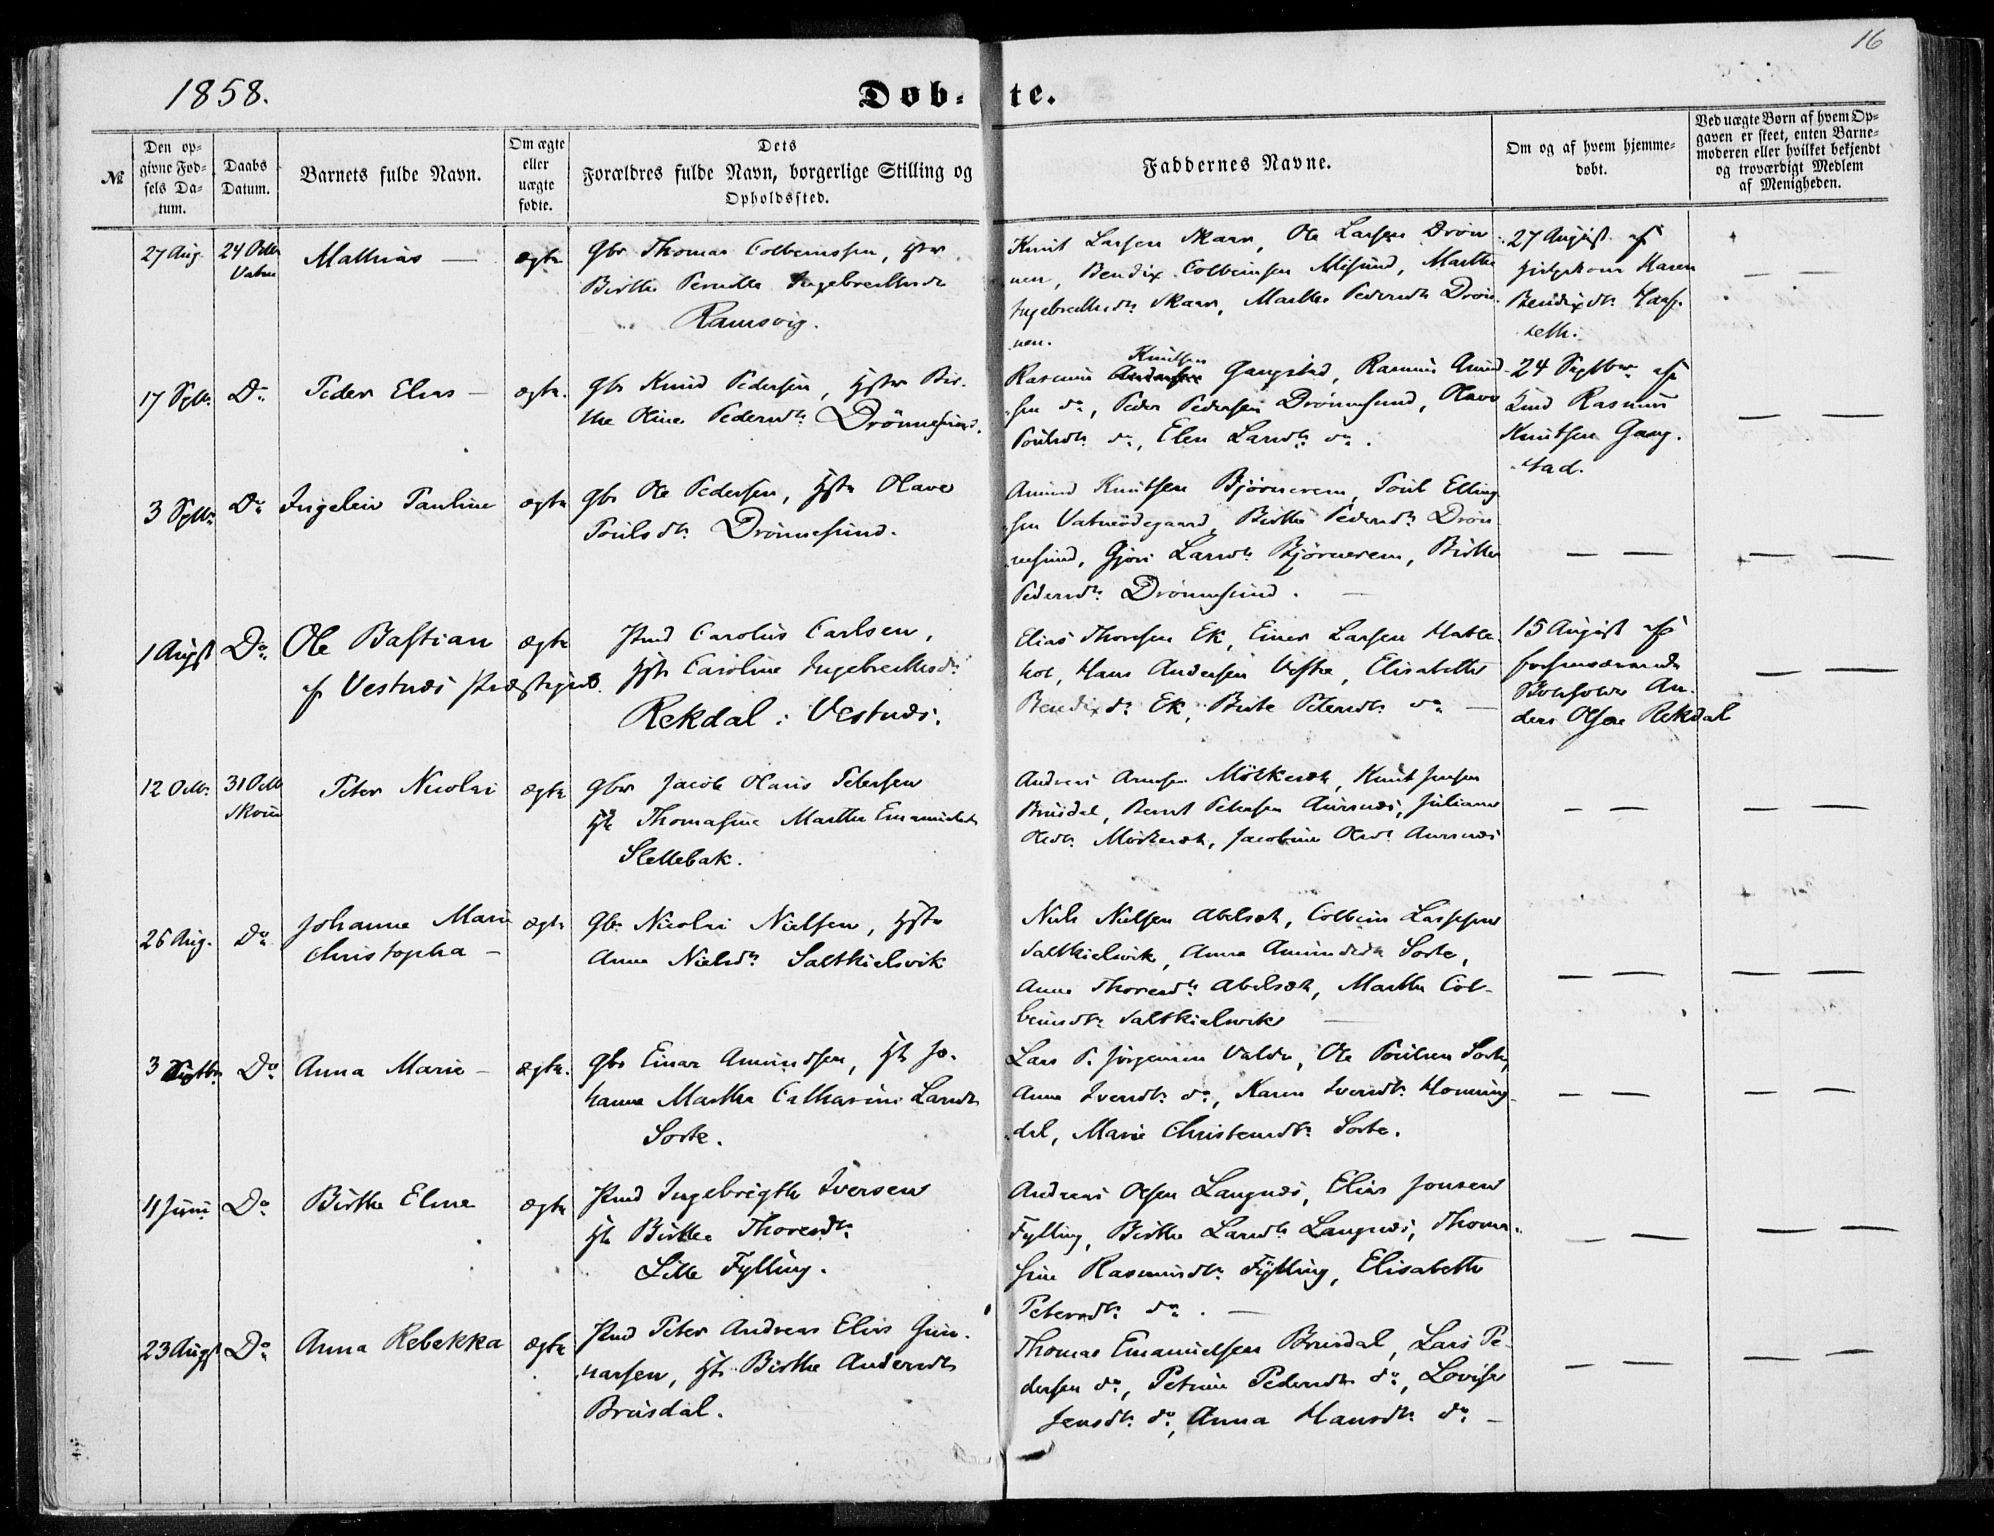 16
1858.
Døb- te.
№
Den op-
givne Fød-
sels Da-
tum.
Daabs
Datum.
Barnets fulde Navn.
Om ægte
eller
uægte
fødte.
Dets
Forældres fulde Navn, borgerlige Stilling og
Opholdssted.
Faddernes Navne.
Om og af hvem hjemme-
døbt.
Ved uægte Børn af hvem Op-
gaven er skeet, enten Barne-
moderen eller hvilket bekjendt
og troværdigt Medlem
af Menigheden.
27 Aug. 24 Octb. Vatne
Mathias —
ægte
Gbr Thomas Colbeinssen,
Birthe Pernille Ingebrethsdr
Ramsvig.
Knut Larsen Skaar, Ole Larsen Drøn-
nen, Bendix Colbeinsen Misund, Marthe
Ingebrethsdr Skaar, Marthe Pedersdr Drøn-
nen.
27 August af
Karen
Bendixdr
seth.
17 Sptb. Do
Peder Elias —
ægte.
Gbr Knud Pedersen, Hstr Bir-
the Oline Pedersdr Drønnesund.
Rasmus Knutsen Gangstad, Rasmus Amund-
sen do, Peder Pedersen Drønnesund, Olave
Poulsdr do, Elen Larsdr do.
24 Septbr af
Rasmus
Knutsen Gang-
stad.
3 Sptb. Do
Ingeleiv Pauline
ægte
Gbr Ole Pedersen, Hstr Olave
Poulsdr Drønnesund.
Amund Knutsen Bjørnerem, Poul Elling-
sen Vatneødegaard, Birthe Pedersdr Drøn-
nesund, Gjøri Larsdr Bjørnerem, Birthe
Pedersdr Drønnesund. —
1 August Do
Ole Bastian
af Vestnæs Præstegjeld.
ægte
Pmd Carolus Carlsen,
Hstr Caroline Ingebrethsdr
Rekdal i Vestnæs.
Elias Thoresen Ek, Einer Larsen
Hans Andersen Vestre, Elisabeth
Bendixdr Ek, Birte Petersdr do —
15 August af
forhenværende
An-
ders Olsen Rekdal
12 Octb. 31 Octb Skoue
Peter Nicolai
ægte
Gbr Jacob Olaus Petersen
H. Thomasine Marthe Emanuelsdr
Slettebak.
Andreas Arnesen Mölkeræt, Knut Jensen
Brusdal, Bernt Petersen Aursnæs, Juliane
Olsdr Mölkeræt, Jacobine Olsdr Aursnæs
26 Aug. Do
Johanne Marie
Christopha —
ægte
Gbr. Nicolai Nielsen, Hstr
Anne Nielsdr Saltkielsvik
Niels Nielsen Abelsæt, Colbein
Saltkielsvik, Anne Amundsdr Sorte,
Anne Thoresdr Abelsæt, Marthe Col-
beinsdr Saltkielsvik —
3 Septbr Do
Anna Marie —
ægte.
Gbr Einar Amundsen, H. Jo-
hanne Marthe Catharine Larsdr
Sorte.
Lars P. Jørgensen Valde, Ole Poulsen Sorte,
Anne Iversdr do, Karen Iversdr Honning-
dal, Marie Christensdr Sorte.
11 Juni Do
Birthe Eline
ægte
Pmd Ingebrigth Iversen
H. Birthe Thoresdr
Lille Fylling.
Andreas Olsen Langnæs, Elias Jonsen
Fylling, Birthe Larsdr Langnæs, Thoma-
sine Rasmusdr Fylling, Elisabeth
Petersdr do. —
23 August Do
Anna Rebekka
ægte
Pmd Peter Andreas Elias Gun-
narsen, H. Birthe Andersdr
Brusdal.
Thomas Emanuelsen Brusdal, Lars Pe-
dersen do, Petrine Pedersdr do, Lovise
Jensdr do, Anna Hansdr do —